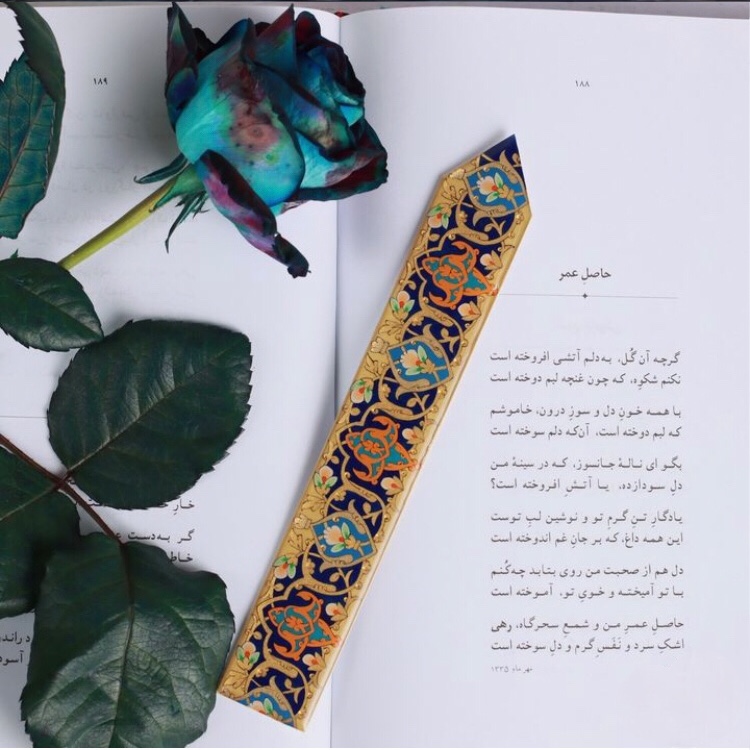 ۱۸۸
حاصلِ عمر
گرچه آن گُل، به‌دلم آتشی افروخته است
نکنم شکوِه، که چون غنچه لبم دوخته است
با همه خونِ دل و سوزِ درون، خاموشم
که لبم دوخته است، آن‌که دلم سوخته است
بگو ای نالهٔ جانسوز، که در سینهٔ من
دلِ سودازده، یا آتشِ افروخته است؟
یادگارِ تنِ گرمِ تو و نوشین لبِ توست
این همه داغ، که بر جانِ غم اندوخته است
دل هم از صحبت من روی بتابد چه‌کُنم
با تو آمیخته و خویِ تو، آموخته است
حاصلِ عمرِ من و شمعِ سحرگاه، رهی
اشکِ سرد و نَفَسِ گرم و دلِ سوخته است
مهر ماه ۱۳۳۵
۱۸۹
خارِ
گر به‌دست